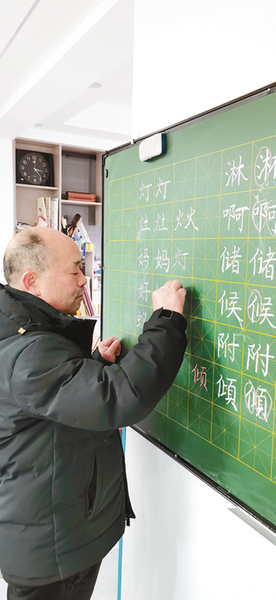 灯 灯 淋 淋
灶 灶 火火 啊 啊
妈 妈 灯 储 储
好 候 候
附 附
倾 傾 傾